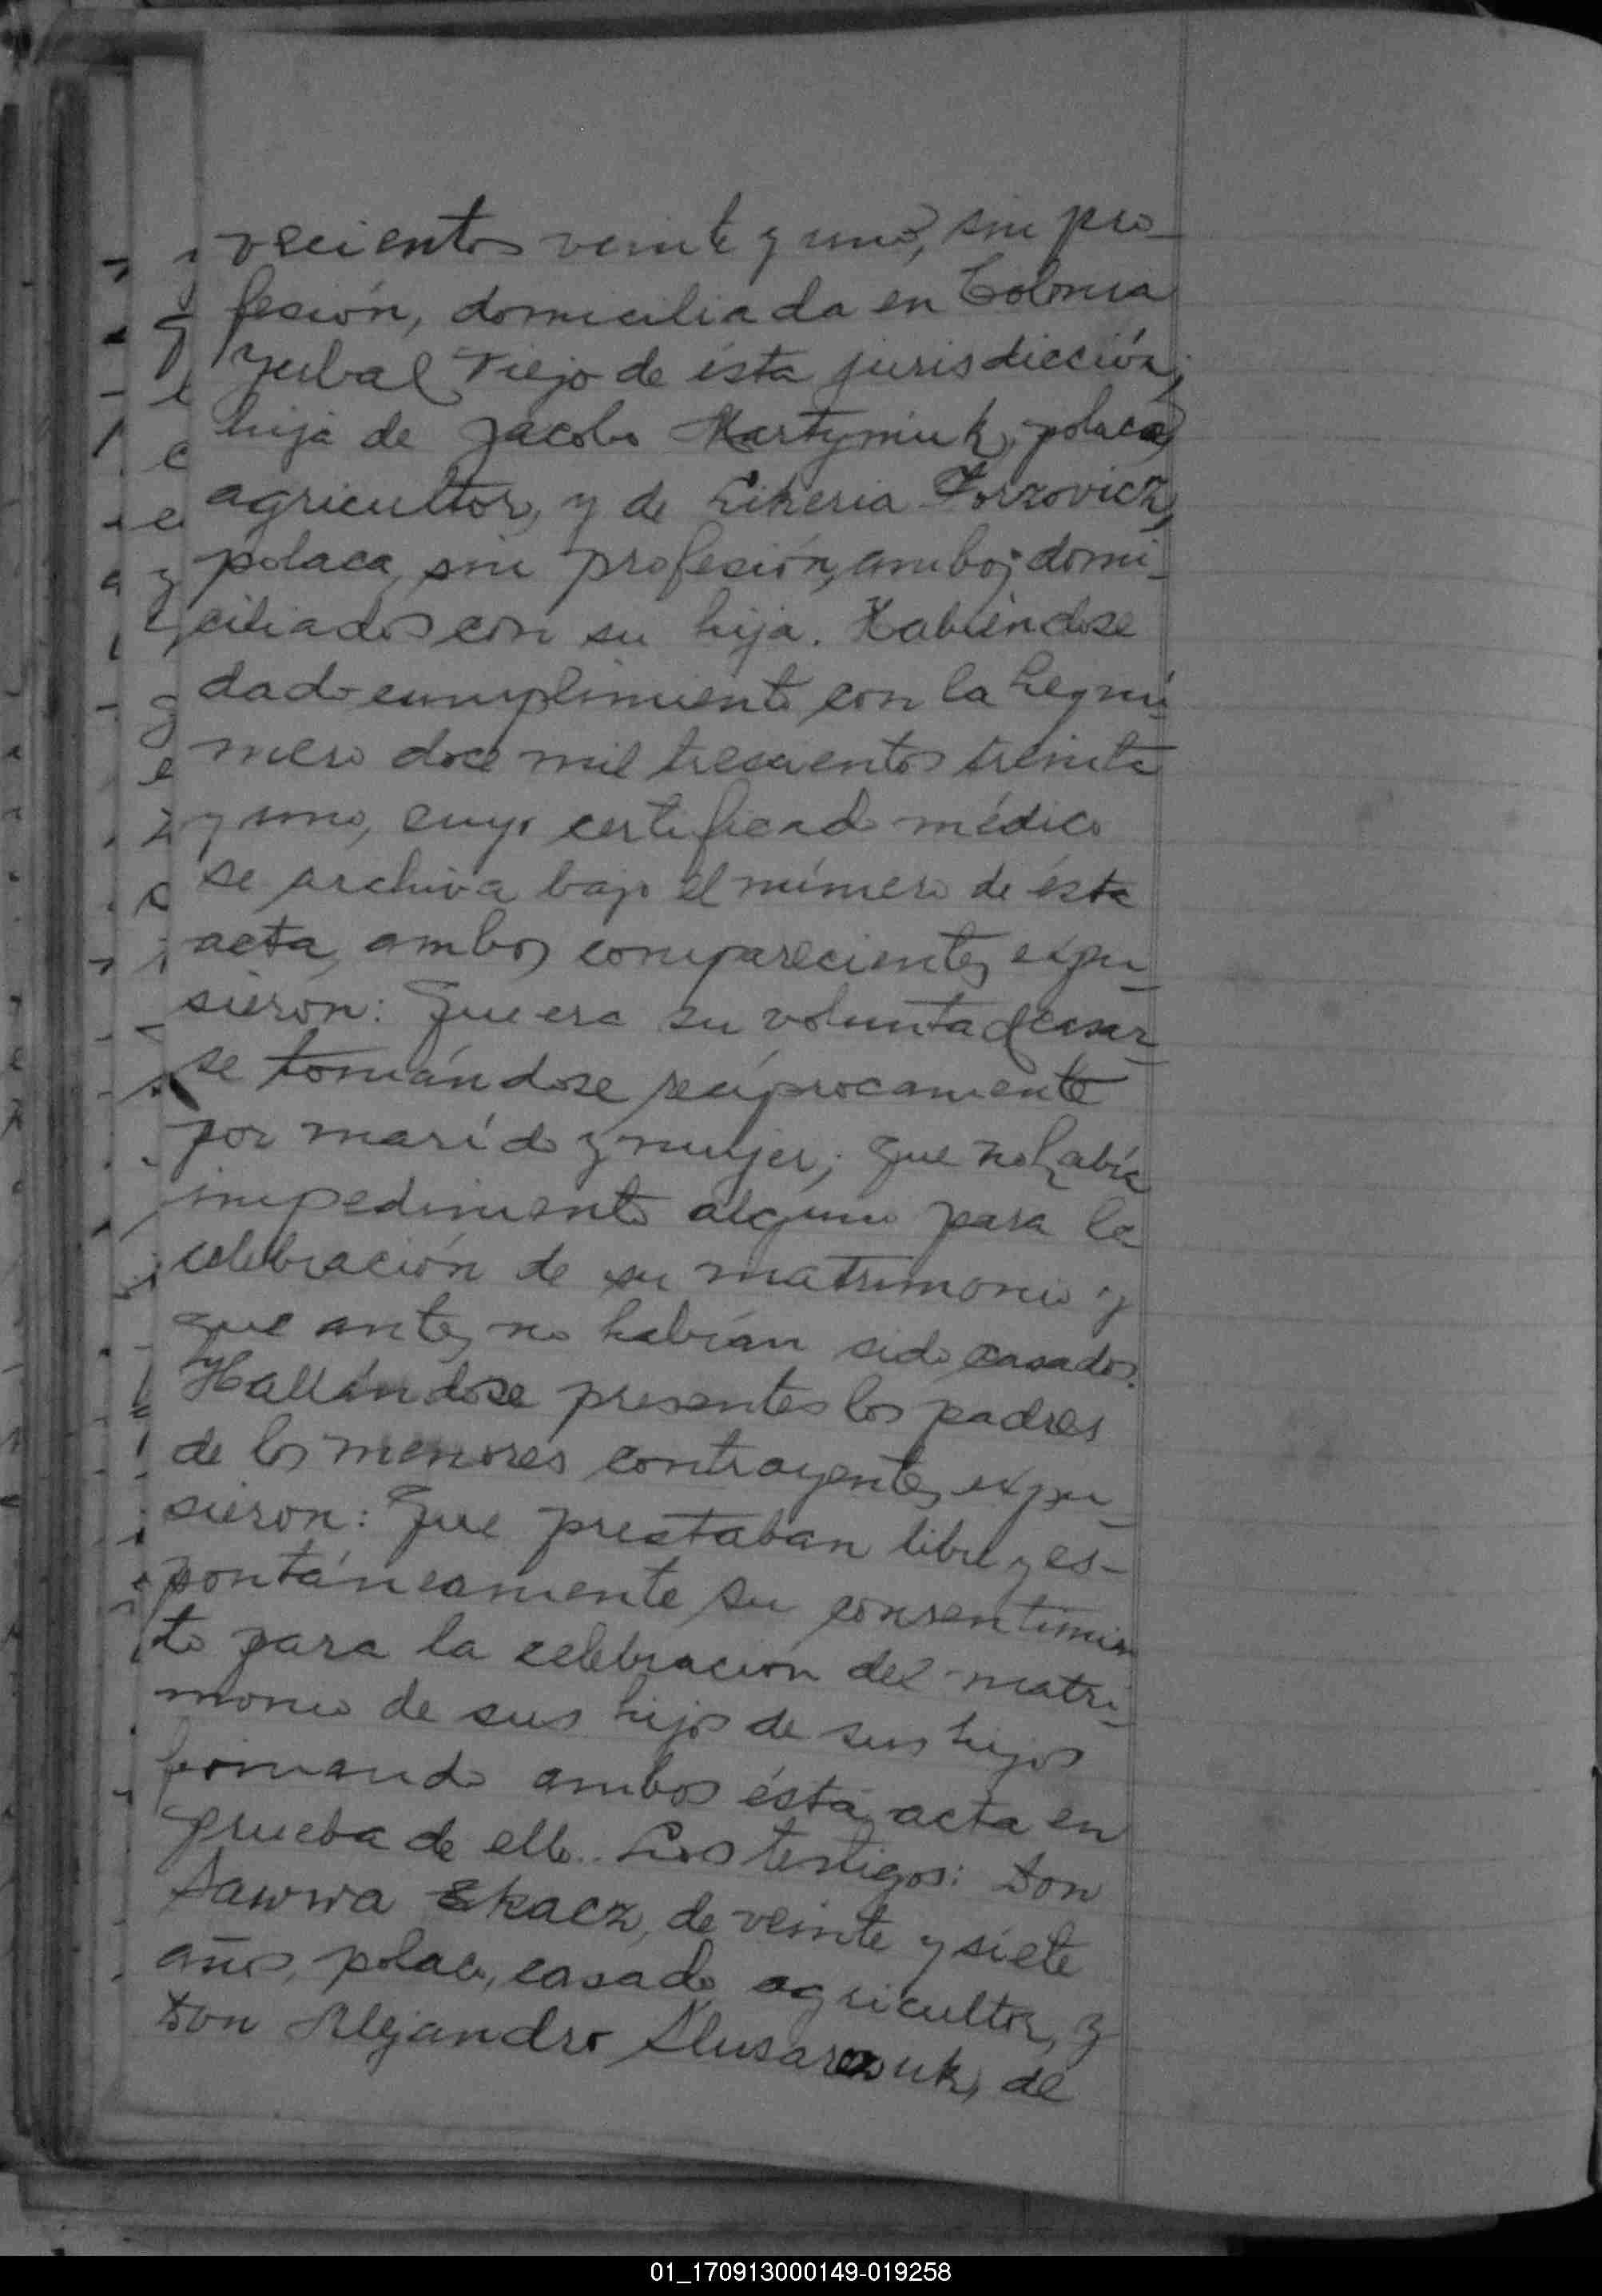 vecientos veinte y uno, sin pro-
fesión, domiciliada en Colonia
Yerbal Viejo de ésta jurisdicción,
hija de Jacobo Martyniuk, polaco,
agricultor, y de Likeria Torzovicz,
polaca, sin profesión, ambos domi-
ciliados con su hija. Habiéndose
dado cumplimiento con la Ley nú-
mero doce mil trescientos treinta
y uno, cuyo certificado médico
se archiva bajo el número de ésta
acta, ambos comparecientes expu-
sieron: Que era su voluntad casar-
se tomándose recíprocamente
por marido y mujer; que no había
impedimento alguno para la
celebración de su matrimonio y
que antes no habían sido casados.
Hallándose presentes los padres
de los menores contrayentes, expu-
sieron: Que prestaban libre y es-
pontáneamente su consentimien
to para la celebración del matri-
monio de sus hijos de sus hijos
firmando ambos ésta acta en
prueba de ello. Los testigos: Don
Sawwa Skacz, de veinte y siete
años, polaco, casado, agricultor, y
Don Alejandro Slusarczuk, de
01_170913000149-019258